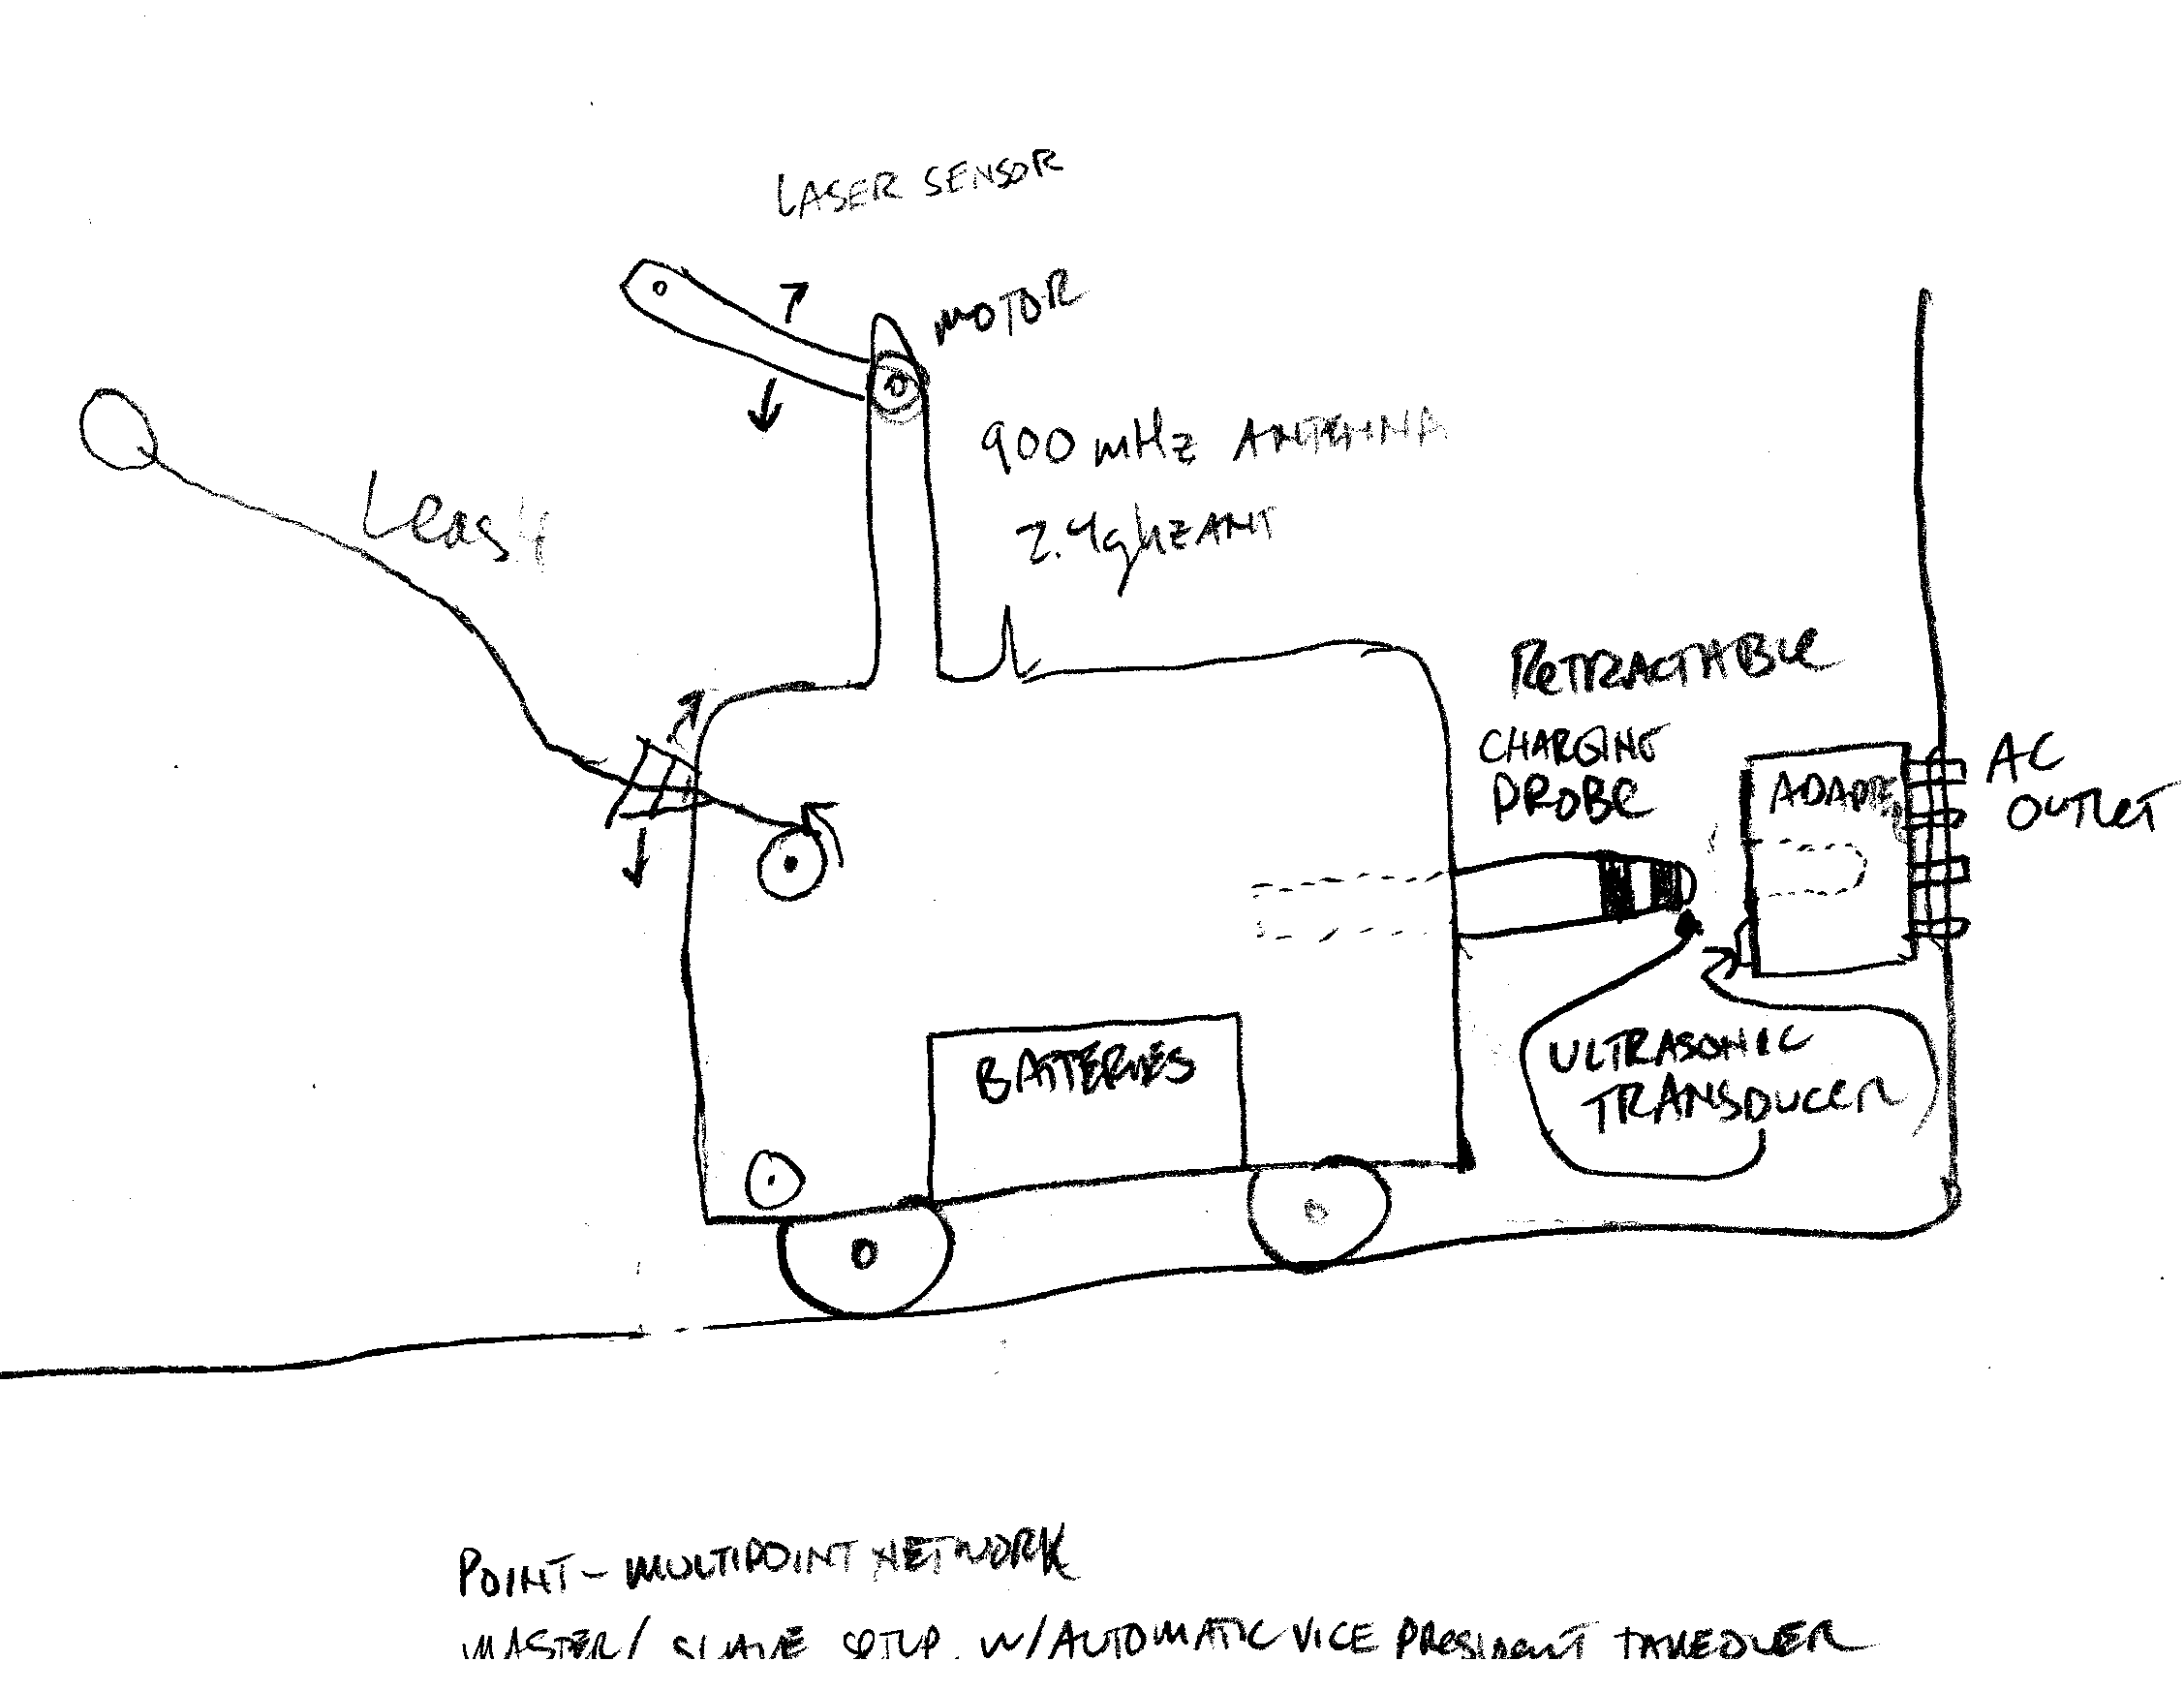 LASER SENSOR
MOTOR
900 mHz ANTENNA
2.4ghz ANT
Leash
RETRACTABLE
CHARGING
PROBE
ADAPTER
AC
OUTLET
BATTERIES
ULTRASONIC
TRANSDUCER
POINT-MULTIPOINT NETWORK
MASTER/ SLAVE SETUP W/AUTOMATIC VICE PRESIDENT TAKEOVER